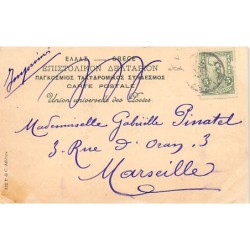 ΕΛΛΑΣ — GRÈCE
ΕΠΙΣΤΟΛΙΚΟΝ ΔΕΛΤΑΡΙΟΝ
ΠΑΓΚΟΣΜΙΟΣ ΤΑΧΥΔΡΟΜΙΚΟΣ ΣΥΝΔΕΣΜΟΣ
CARTE POSTALE
Union universelle des Postes
Mademoiselle Gabrielle Pinatel
3 - Rue d'Oran, 3
Marseille